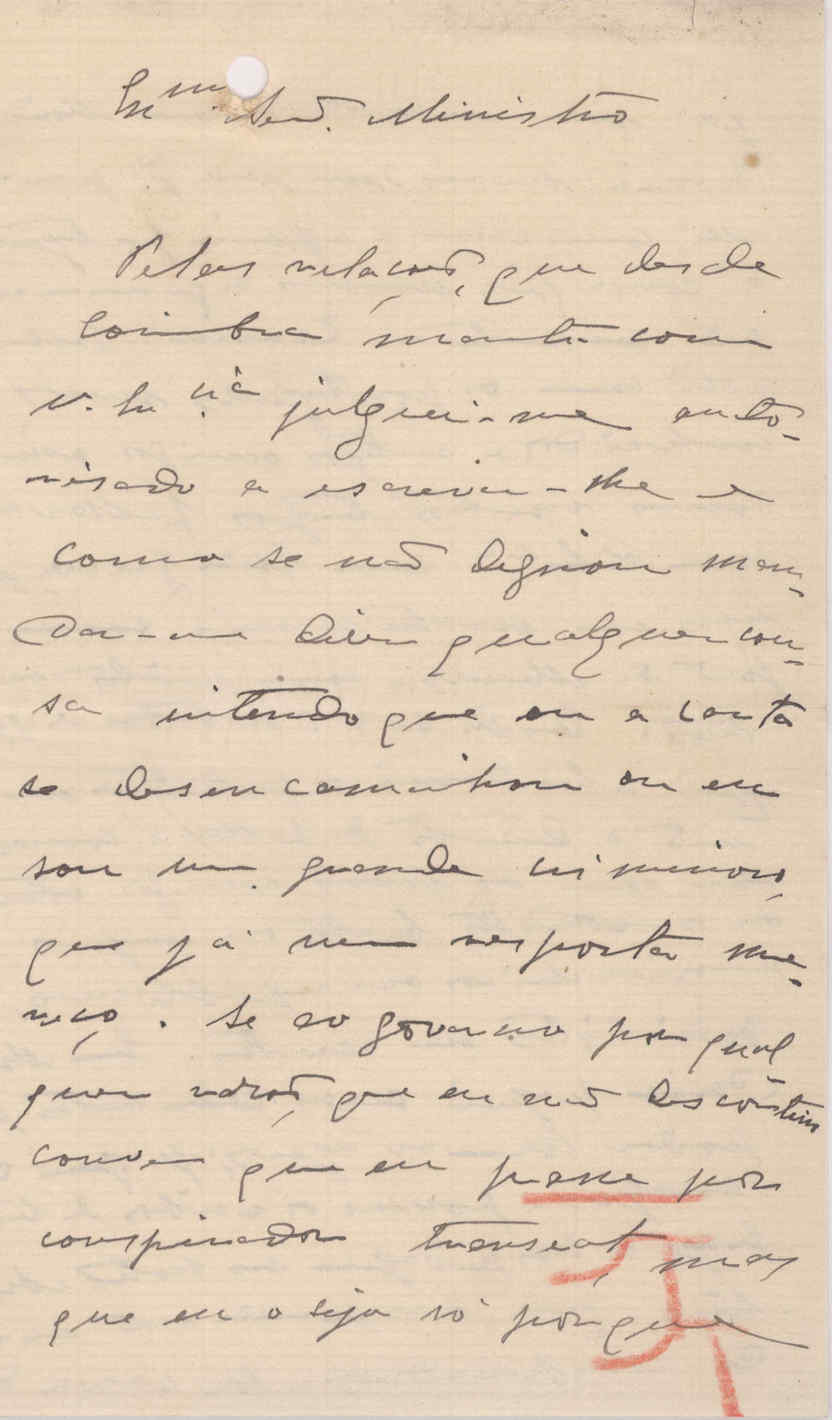 Exmo. Senr. Ministro
Pelas relações, que desde
Coimbra mantı̃ com
V. Excia julguei-me auto-
risado a escrever-lhe e
como se não dignou man-
dar-me dizer qualquer cou-
sa intendo que ou a carta
se desencaminhou ou eu
sou um grande criminoso,
que já nem resposta me-
reço. Se ao governo por qual
quer razão, que eu não descortino
convem que eu passe por
conspirador transeat, mas
que eu o seja só porque